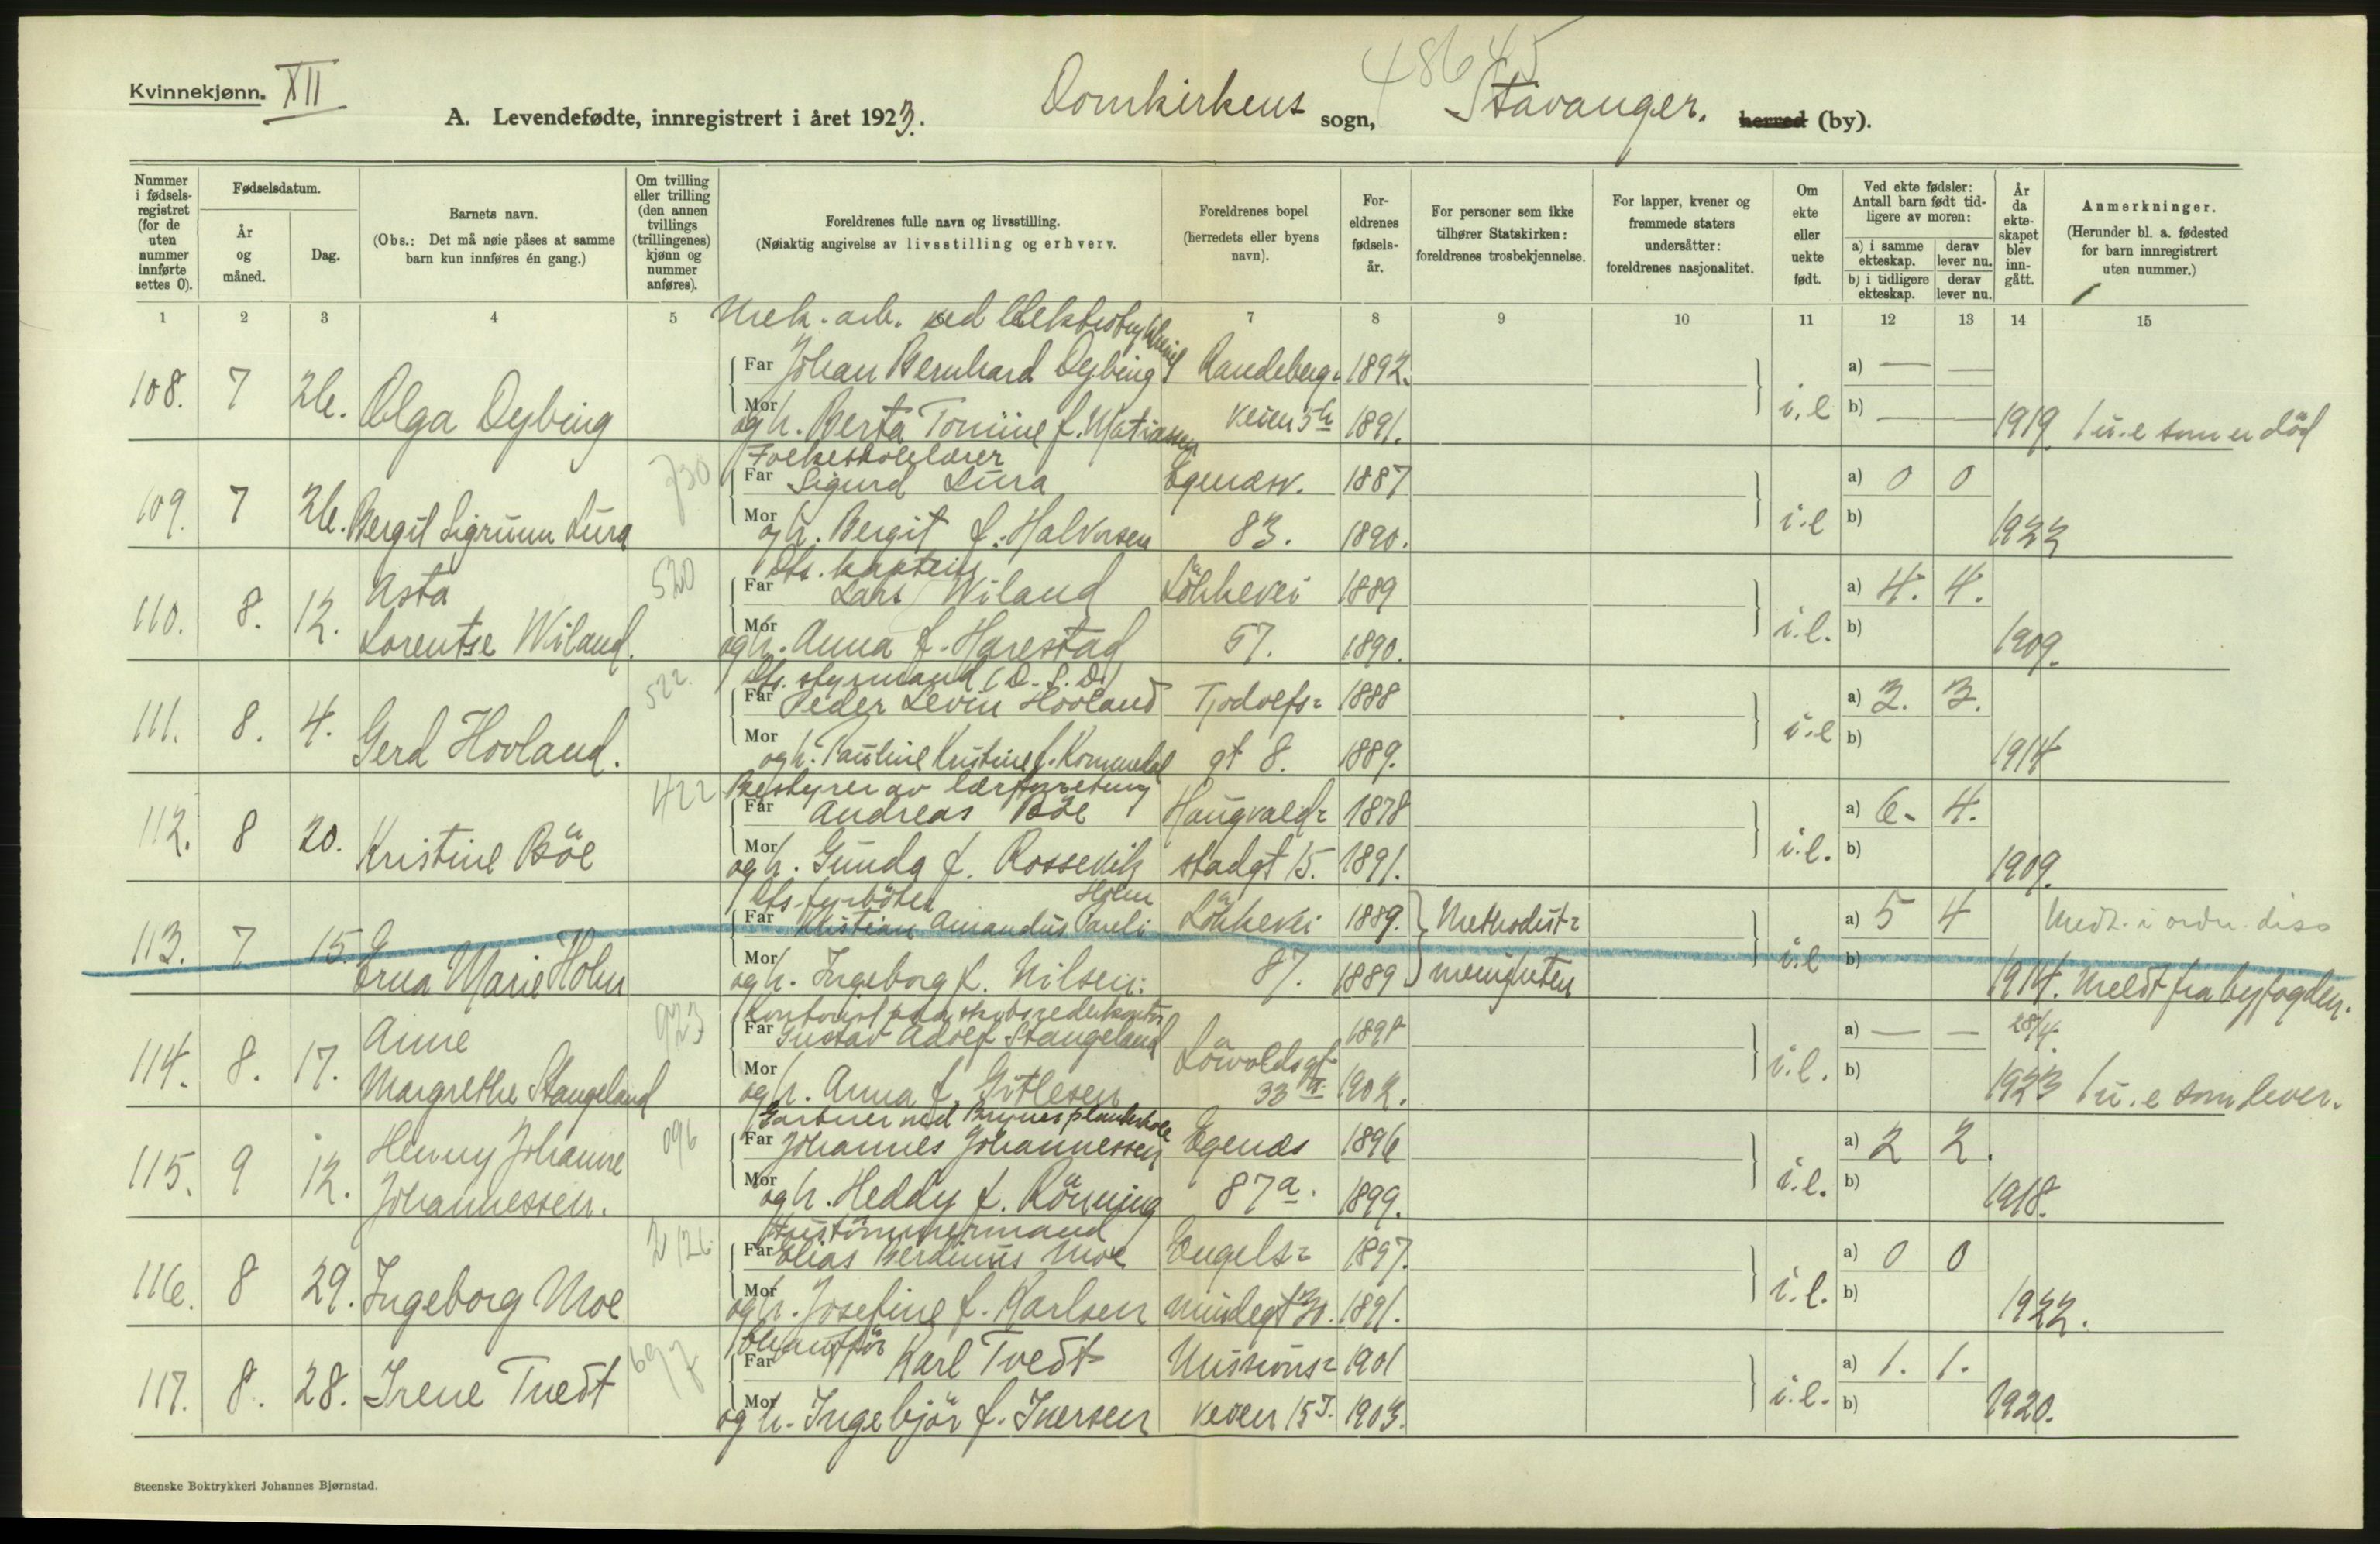 48645
Kvinnekjønn. XII
A. Levendefødte, innregistrert i året 1923. Domkirkens sogn, Stavanger. herred (by).
Nummer i fødselsregistret (for de uten nummer innførte settes 0).
Fødselsdatum.
År og måned.
Dag.
Barnets navn.
(Obs.: Det må nøie påses at samme barn kun innføres én gang.)
Om tvilling eller trilling (den annen tvillings (trillingenes) kjønn og nummer anføres).
Foreldrenes fulle navn og livsstilling.
(Nøiaktig angivelse av livsstilling og erhverv.
Foreldrenes bopel (herredets eller byens navn).
Foreldrenes fødselsår.
For personer som ikke tilhører Statskirken: foreldrenes trosbekjennelse.
For lapper, kvener og fremmede staters undersåtter: foreldrenes nasjonalitet.
Om ekte eller uekte født.
Ved ekte fødsler: Antall barn født tidligere av moren:
a) i samme ekteskap. derav lever nu.
b) i tidligere ekteskap. derav lever nu.
År da ekteskapet blev inngått.
Anmerkninger.
(Herunder bl. a. fødested for barn innregistrert uten nummer.)
1 2 3 4 5 6 7 8 9 10 11 12 13 14 15
Mek. arb. ved
Far Johan Bernhard Dybing Randeberg- 1892. a) — —
108. 7 26. Olga Dybing
Mor og h. Berta Tomine f. Matiassen veien 5 b 1891. i.e b) — — 1919. 1 u.e som er död
Folkeskolelærer
730 Far Sigurd Lura Egenæsv. 1887 a) 0 0
109. 7 26. Bergit Sigrunn Lura
Mor og h. Bergit f. Halvorsen 83. 1890. i.e b) 1922
Dfs. kaptein
110. 8. 12. Asta Lorentse Wiland. 520
Far Lars Wiland Lökkevei 1889 a) 4. 4.
Mor og h. Anna f. Harestad 57. 1890. i.e. b) 1909.
Dfs. styrmand (D.S.D.)
111. 8. 4. Gerd Hovland. 522.
Far Peder Levin Hovland Tjodolfs- 1888 a) 3. 3.
Mor og h. Pauline Kristine f. Kommedal gt 8. 1889. i.e b) 1914
Bestyrer av
112. 8 20. Kristine Böe 422
Far Andreas Böe Haugvald- 1878 a) 6- 4.
Mor og h. Gunda f. Rossevik stadgt 15. 1891. i.e. b) 1909.
Dfs. fyrböter
113. 7 15. Erna Marie Holm
Far Kristian Amandus Pareli Holm Lökkevei 1889. Methodist- a) 5 4 Medt. i ordn. diss
Mor og h. Ingeborg f. Nilsen. 87. 1889 menigheten i.e b) 1914. Meldt fra byfogden.
Kontorist paa skibsrederkontor
114. 8. 17. Anne Margrethe Stangeland 923
Far Gustav Adolf Stangeland Lövoldsgt 1898 a) — — 28/4
Mor og h. Anna f. Gitlesen 33 1902. i.e. b) 1923 1 u.e som lever.
Gartner ved Brynes planteskole
115. 9 12. Henny Johanne Johannessen. 096
Far Johannes Johannessen Egenæs 1896 a) 2 2.
Mor og h. Heddy f. Rönning 87 a. 1899. i.e. b) 1918.
Hustömmermand
116. 8 29. Ingeborg Moe 2126.
Far Elias Berdinus Moe Engels- 1897. a) 0 0
Mor og h. Josefine f. Karlsen mindegt 30. 1891. i.e. b) 1922.
Chaufför
117. 8. 28. Irene Tvedt 697
Far Karl Tvedt Missions- 1901 a) 1. 1.
Mor og h. Ingebjör f. Iversen veien 15 I. 1903. i.e. b) 1920.
Steenske Boktrykkeri Johannes Bjørnstad.